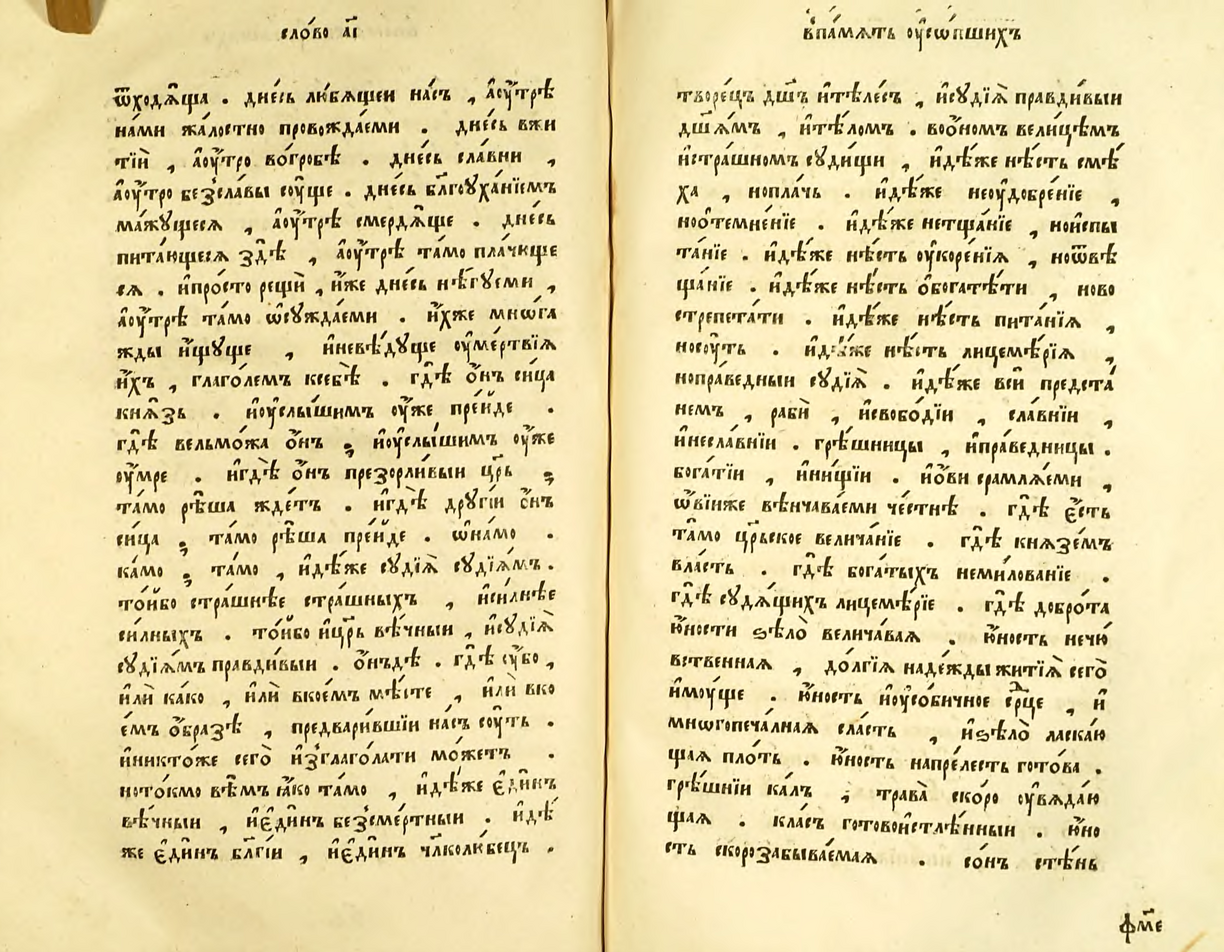 сло́во а҃і
ѿходѧ́ща . дне́сь лю́бѧщеи на́съ , а҆оу҆́трѣ
на́ми жа́лостно провождаеми . дне́сь вжи
тїи҆ , а҆оу҆́тро во́гробѣ . дне́сь сла́вни ,
а҆оу҆́тро беꙁ̾сла́вы соу́ще . дне́сь бл҃гоуха́нїемъ
ма́жꙋщесѧ , а҆оу҆́трѣ смердѧ́ще . дне́сь
пита́ющесѧ ꙁдѣ̀ , а҆оу҆́трѣ та́мо пла́чюще
сѧ . и҆про́сто рещѝ , и҆́же дне́сь нѣ́гꙋеми ,
а҆оу҆́трѣ та́мо ѡ҆сꙋжда́еми . и҆́хже мнѡга
жды и҆́щꙋще , и҆невѣ́дꙋще оу҆ме́ртвїѧ
и҆́хъ , глаго́лемъ ксебѣ̀ . гдѣ̀ о҆́нъ си́ца
кнѧ́ꙁь . и҆оу҆слы́шимъ оу҆́же пре́йде .
гдѣ̀ вельмо́жа о҆́нъ ; и҆оу҆слы́шимъ оу҆́же
оу҆́мре . и҆гдѣ̀ о҆́нъ преꙁорли́выи цр҃ь ;
та́мо рѣ́ша жде́тъ . и҆гдѣ̀ дрꙋгі́и о҆́нъ
си́ца ; та́мо рѣ́ша пре́йде . ѡ҆на́мо .
ка́мо ; та́мо , и҆дѣ́же сꙋдїѧ̀ сꙋдїѧ́мъ .
то́йбо страшнѣе стра́шныхъ , и҆си́лнѣе
си́лныхъ . то́йбо и҆цр҃ь вѣ́чныи , и҆сꙋдїѧ̀
сꙋдїѧ́мъ правди́выи . о҆́нъдѣ . гдѣ̀ оу҆́бо ,
и҆лѝ ка́ко , и҆лѝ вко́емъ мѣ́сте , и҆лѝ вко
е́мъ о҆́браꙁѣ , предвари́вшїи на́съ соу́ть .
и҆никто́же сего̀ и҆ꙁ̾глаго́лати мо́жетъ .
нотокмо вѣ́мъ ꙗ҆́ко та́мо , и҆дѣ́же є҆ди́нъ
вѣ́чныи , и҆є҆ди́нъ беꙁ̾сме́ртныи . и҆дѣ́
же є҆ди́нъ бл҃гі́и , и҆є҆ди́нъ чл҃колю́бецъ .
впа́мѧть оу҆со́пшихъ
творе́цъ дш҃ъ и҆тѣле́съ , и҆сꙋдїѧ̀ правди́выи
дш҃ѧ́мъ , и҆тѣло́мъ . воо҆́номъ вели́цѣмъ
и҆стра́шномъ сꙋди́щи , и҆дѣ́же нѣ́сть смѣ́
ха , нопла́чь . и҆дѣ́же неоу҆добре́нїе ,
ноо҆темне́нїе . и҆дѣ́же нетща́нїе , нои҆спы
та́нїе . и҆дѣ́же нѣ́сть оу҆коре́нїѧ , ноѿвѣ
ща́нїе . и҆дѣ́же нѣ́сть о҆богатѣ́ти , ново
стрепета́ти . и҆дѣ́же нѣ́сть пита́нїѧ ,
носоу́ть . и҆дѣ́же нѣ́сть лицемѣ́рїѧ ,
нопра́ведныи сꙋдїѧ̀ . и҆дѣ́же всѝ предста́
немъ , рабѝ , и҆свобо́дїи , сла́внїи ,
и҆несла́внїи . грѣ́шницы , и҆пра́ведницы .
бога́тїи , и҆ни́щїи . и҆о҆́ви срамлѧ́еми ,
ѡ҆́вїиже вѣнчава́еми че́стнѣ . гдѣ̀ є҆́сть
та́мо цр҃ьское велича́нїе . гдѣ̀ кнѧꙁе́мъ
вла́сть . гдѣ̀ бога́тыхъ неми́лованїе .
гдѣ̀ сꙋдѧ́щихъ лицемѣ́рїе . гдѣ̀ добро́та
ю҆́ности ѕѣло̀ велича́ваѧ . ю҆́ность нечю́
вственнаѧ , до́лгїѧ наде́жды житїѧ̀ сего̀
и҆моу́ще . ю҆́ность и҆оу҆со́бичное ср҃це , и҆
мнѡгопеча́лнаѧ сла́сть , и҆ѕѣло̀ ласка́ю
щаѧ пло́ть . ю҆́ность напре́лесть гото́ва .
грѣ́шнїи ка́лъ ; трава̀ ско́ро оу҆вѧда́ю
щаѧ . кла́съ гото́вои҆стлѣ́нныи . ю҆́но
сть скороꙁабыва́емаѧ . со́нъ стѣ́нь
фм҃е